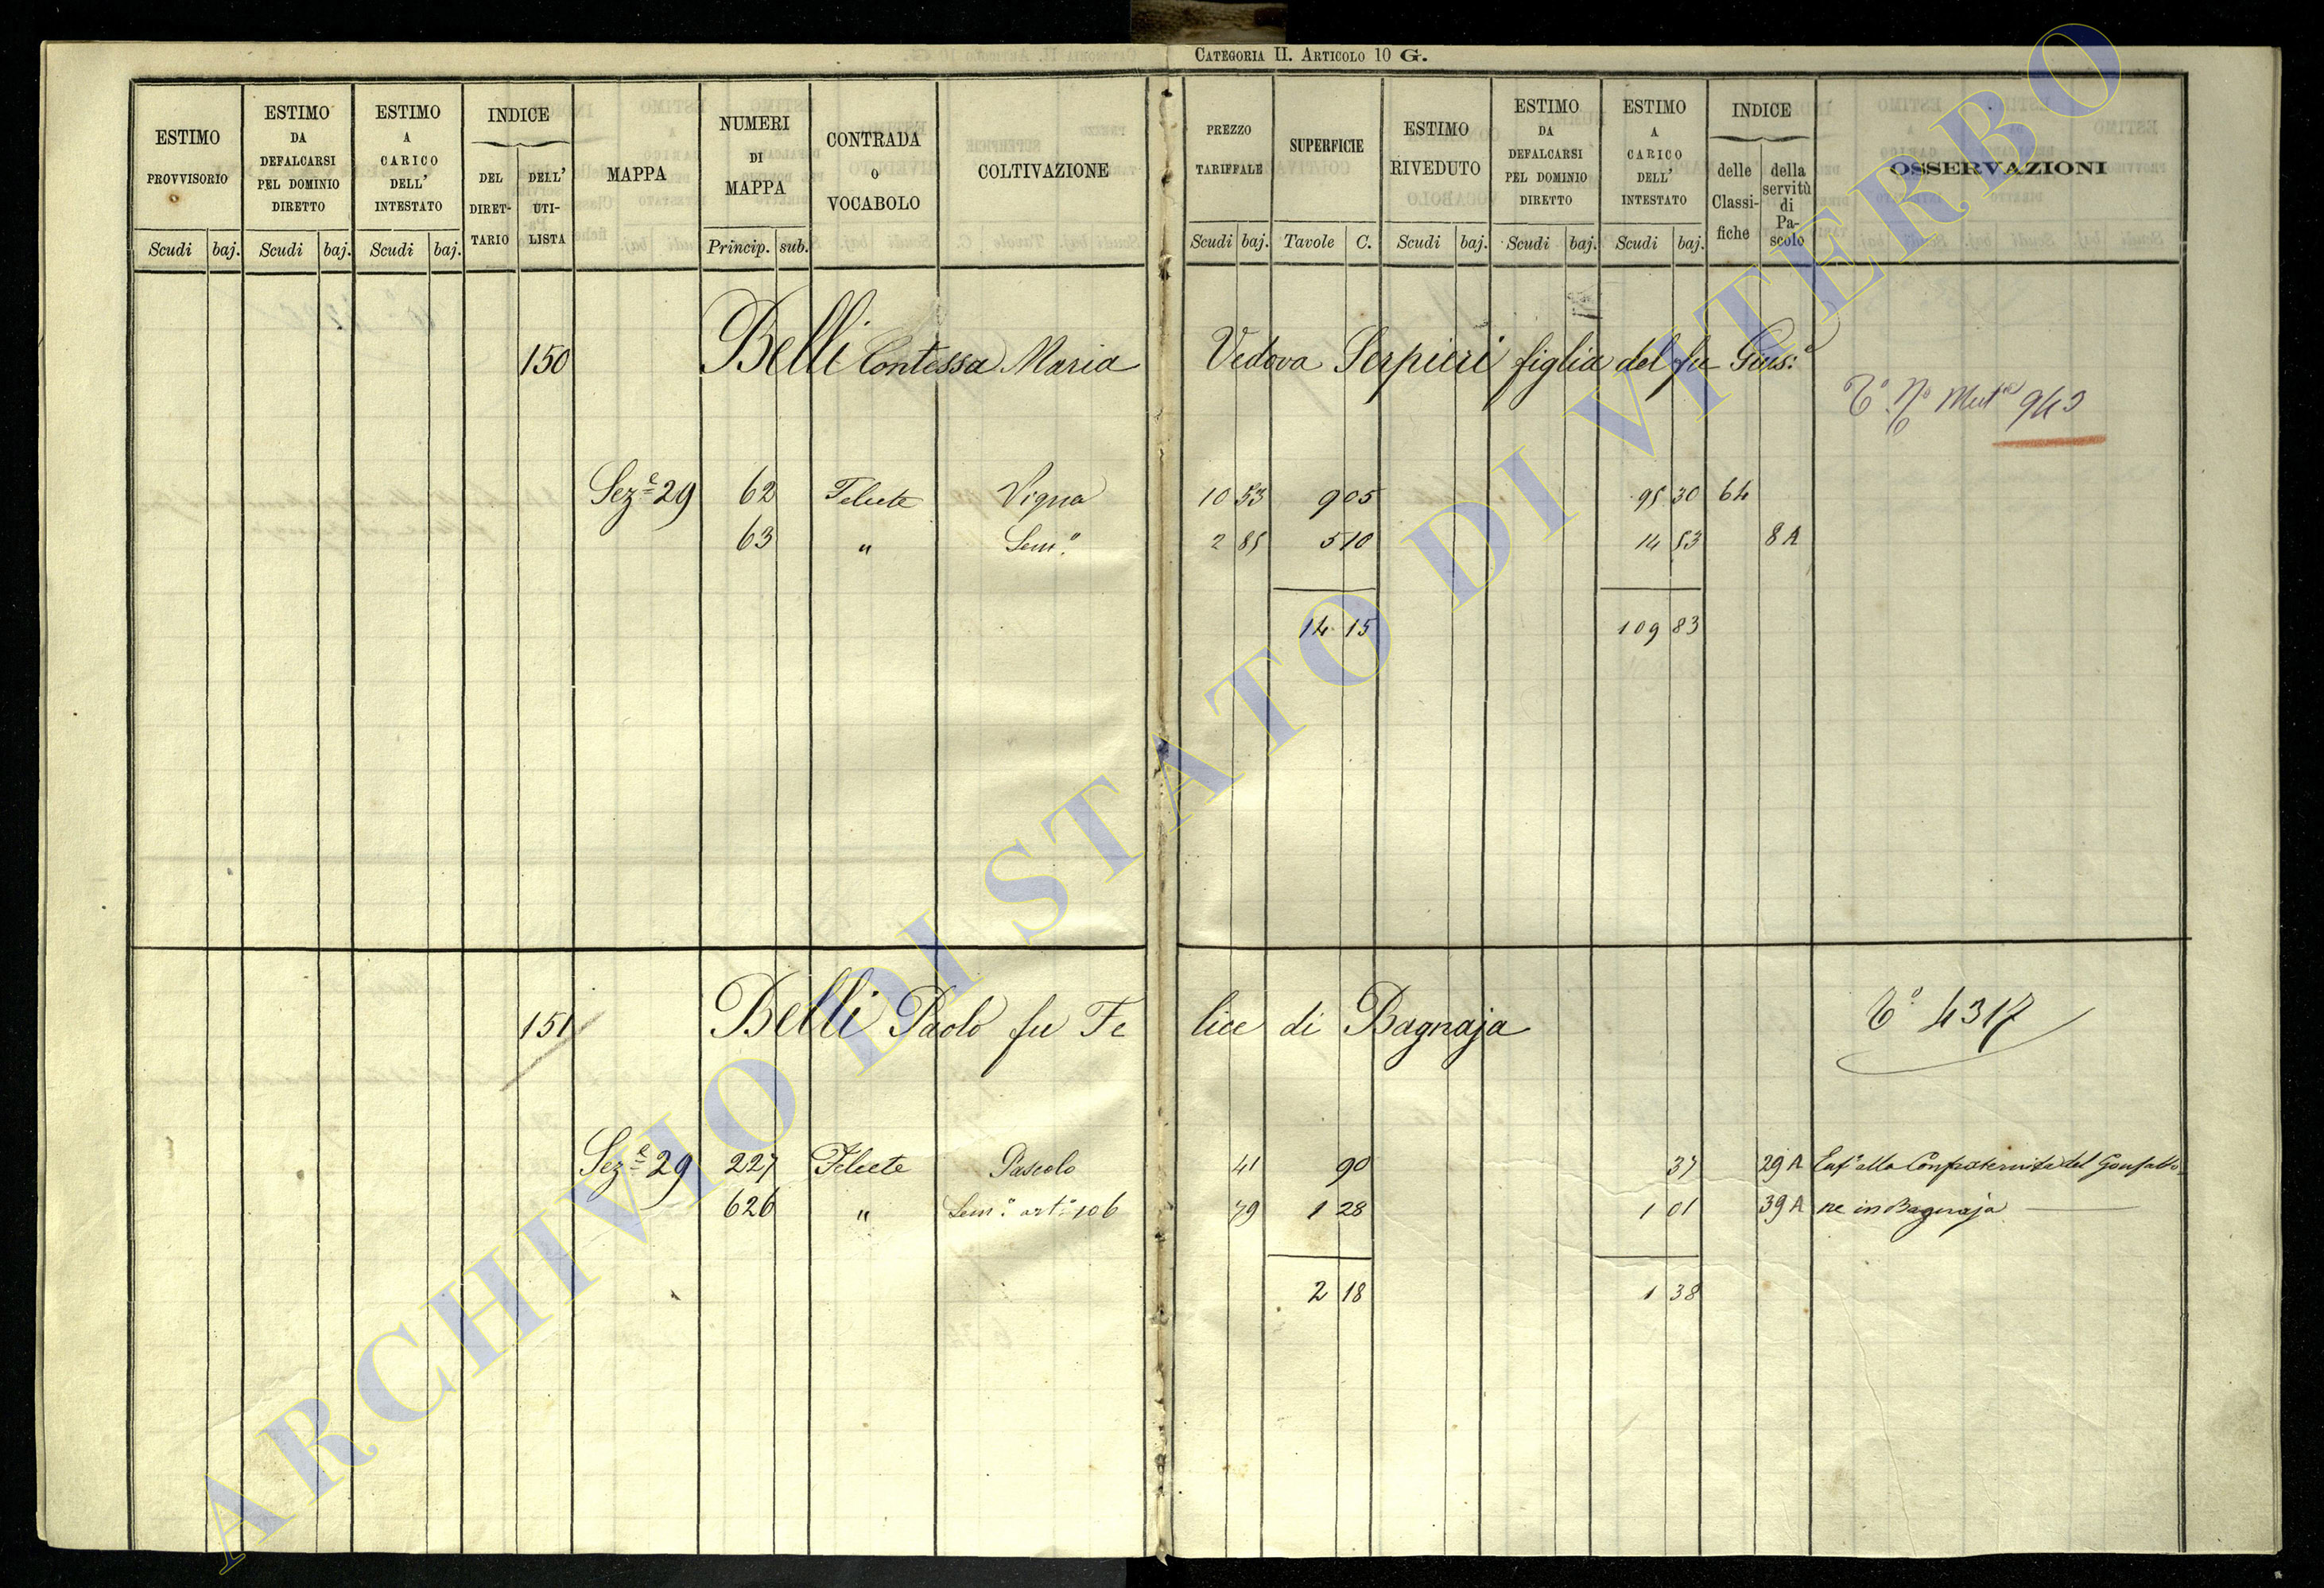 CATEGORIA II. ARTICOLO 10 G.
ESTIMO PROVVISORIO
Scudi baj.
ESTIMO DA DEFALCARSI PEL DOMINIO DIRETTO
Scudi baj.
ESTIMO A CARICO DELL' INTESTATO
Scudi baj.
INDICE
DEL DIRET-TARIO
DELL' UTI-LISTA
MAPPA
NUMERI DI MAPPA
Princip. sub.
CONTRADA O VOCABOLO
COLTIVAZIONE
PREZZO TARIFFALE
Scudi baj.
SUPERFICIE
Tavole C.
ESTIMO RIVEDUTO
Scudi baj.
ESTIMO DA DEFALCARSI PEL DOMINIO DIRETTO
Scudi baj.
ESTIMO A CARICO DELL' INTESTATO
Scudi baj.
INDICE
delle Classi-fiche
della servitù di Pa-scolo
OSSERVAZIONI
150 Belli Contessa Maria Vedova Serpieri figlia del fu Gius:e
T.o N.o Mut.e 943
Sez.e 29 62 Felcete Vigna 10 53 9 05 95 30 64
63 " Sem.o 2 85 5 10 14 53 8 A
14 15 109 83
151 Belli Paolo fu Fe lice di Bagnaja T.o 4317
Sez.e 29 227 Felcete Pascolo 41 90 37 29 A Enf.o alla Confraternita del Gonfalo-
626 " Sem.o art.o 106 79 1 28 1 01 39 A ne in Bagnaja
2 18 1 38
ARCHIVIO DI STATO DI VITERBO